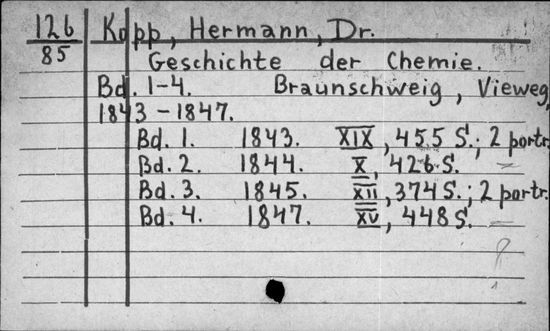 126 Kopp, Hermann, Dr.
85 Geschichte der Chemie.
Bd. 1-4. Braunschweig, Vieweg
1843-1847.
Bd. 1. 1843. XIX, 455 S.; 2 portr.
Bd. 2. 1844. X, 426 S. –
Bd. 3. 1845. XII, 374 S.; 2 portr.
Bd. 4. 1847. XV, 448 S. –